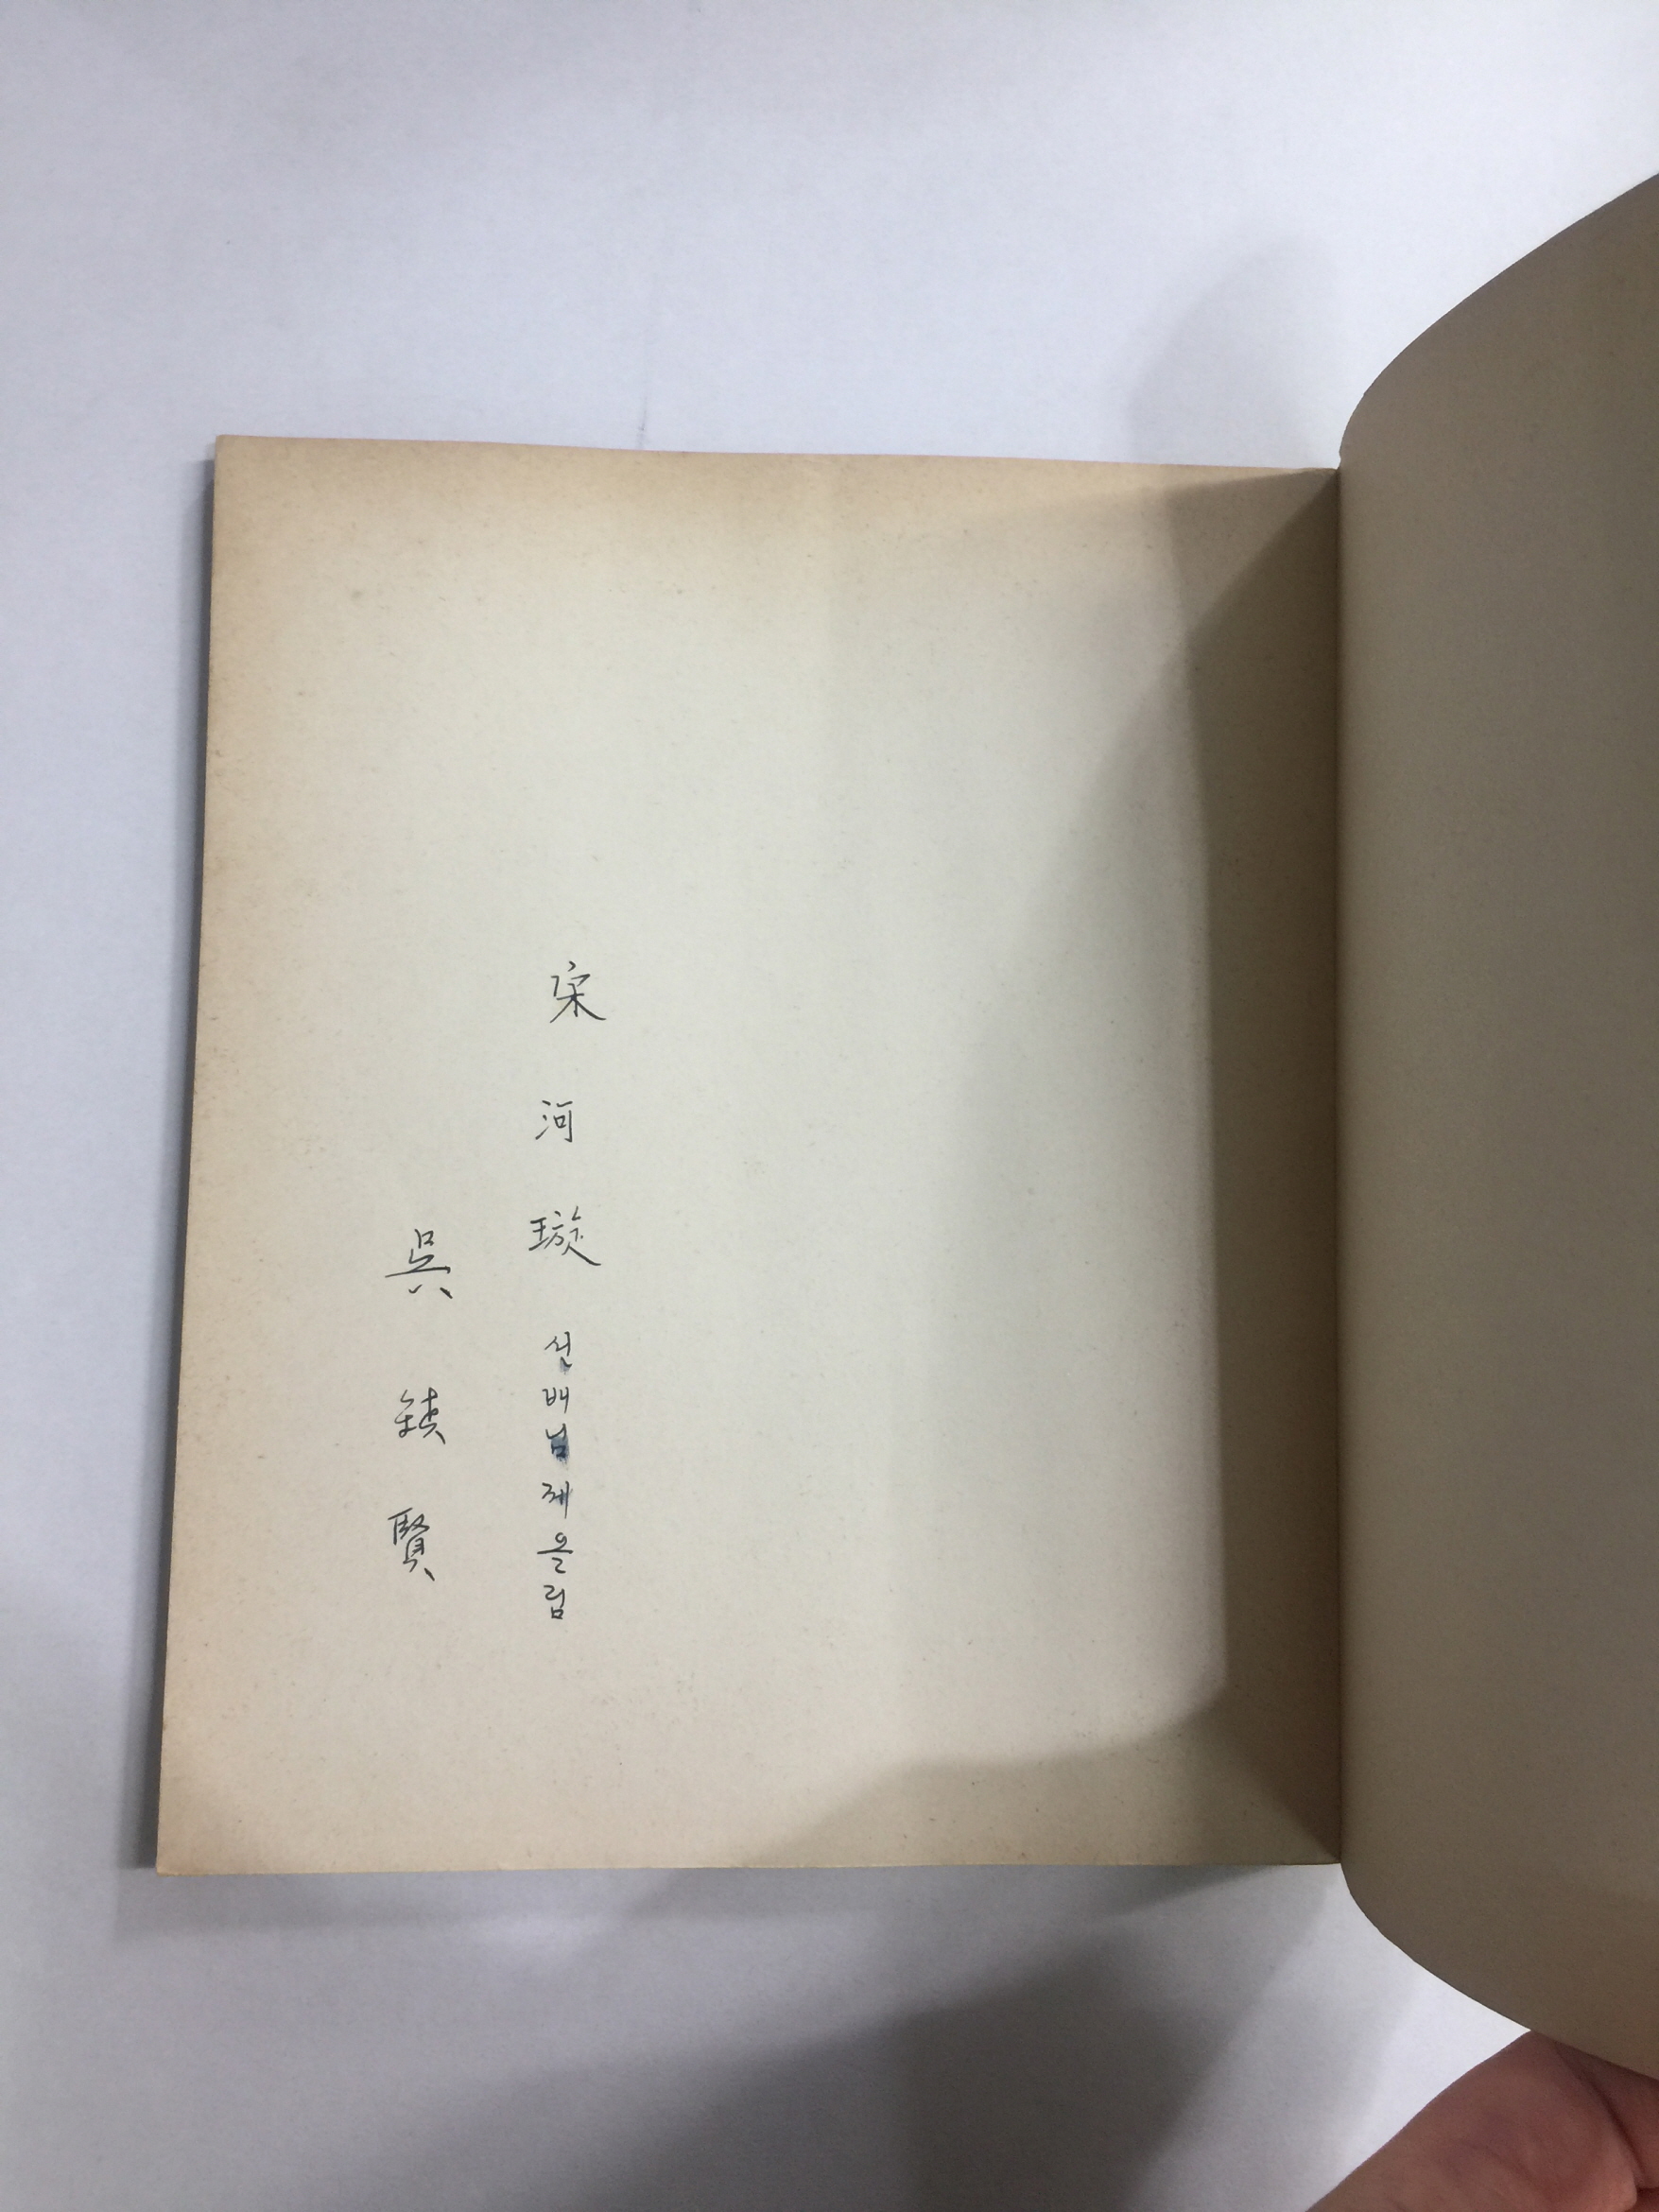 宋河璇 선배님께 올림
吳鎮賢